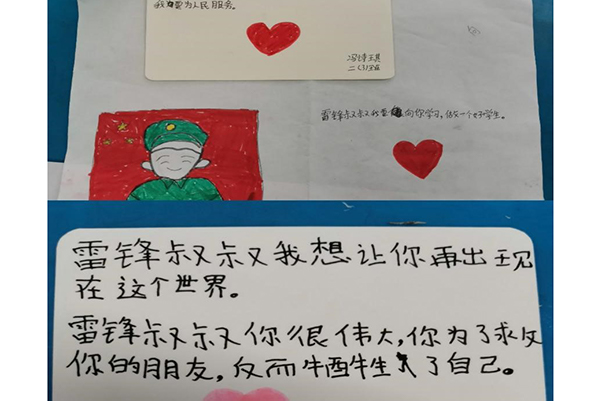 我要为人民服务。
冯诗琪
二(3)班
雷锋叔叔我要向你学习,做一个好学生。
雷锋叔叔我想让你再出现
在这个世界。
雷锋叔叔你很伟大,你为了救
你的朋友,反而牺牲了自己。